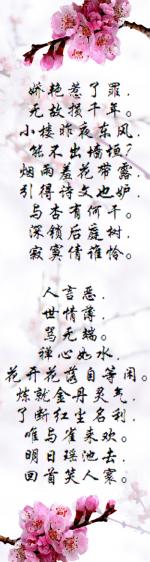 娇艳惹了罪，
无故损千年。
小楼昨夜东风，
能不出墙垣？
烟雨羞花带露，
引得诗文也妒，
与杏有何干。
深锁后庭树，
寂寞倩谁怜。
人言恶，
世情薄，
骂无端。
禅心如水，
花开花落自等闲。
炼就金丹灵气，
了断红尘名利，
唯与雀来欢。
明日瑶池去，
回首笑人寰。